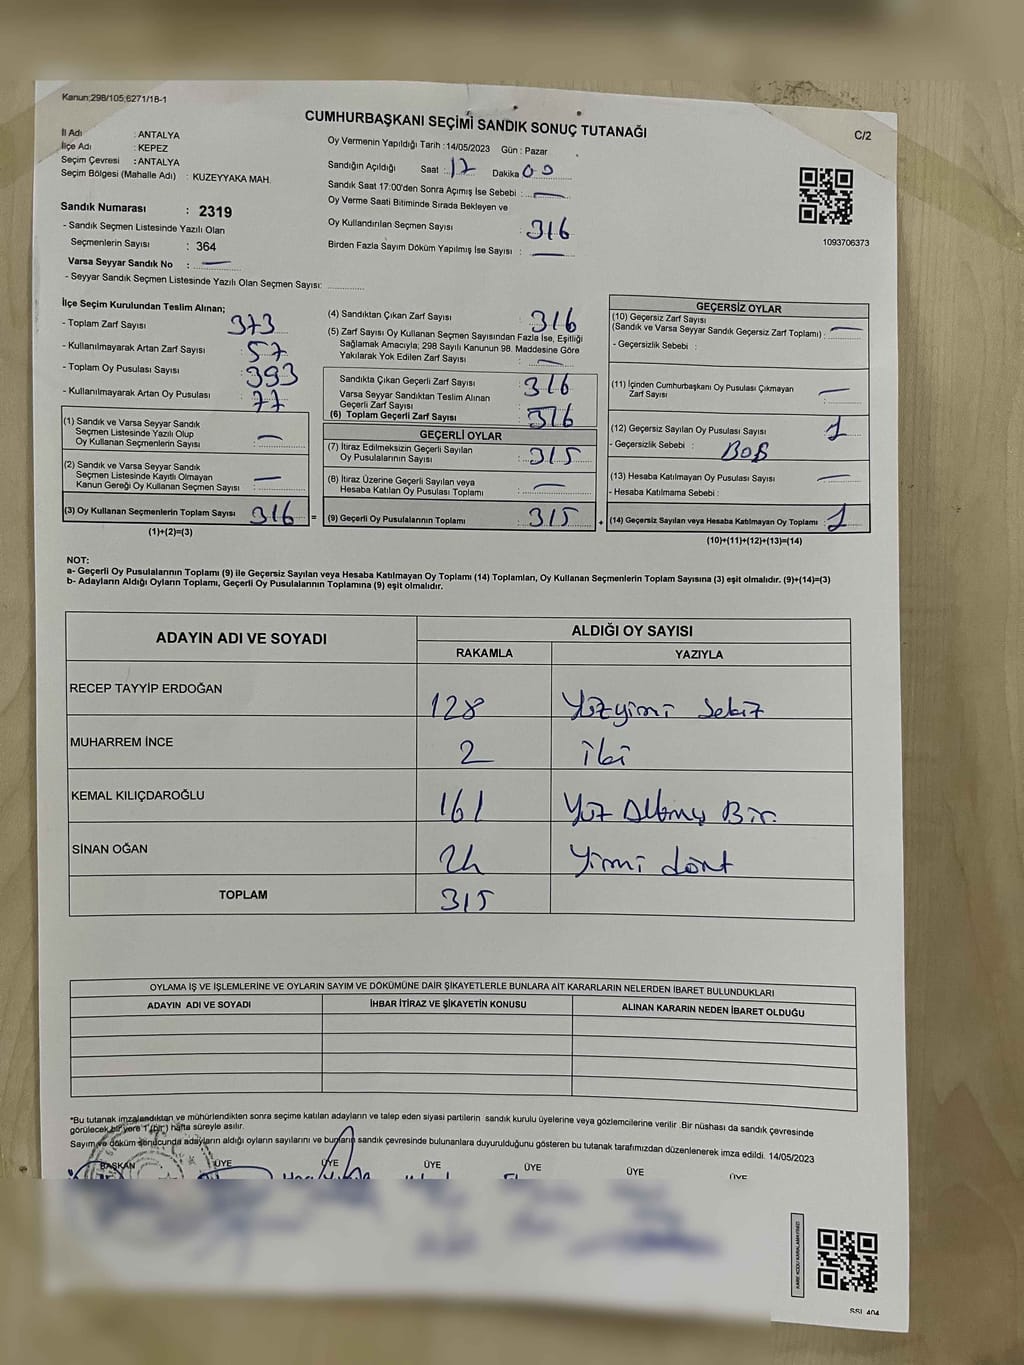 Kanun;298/105,6271/18-1
CUMHURBAŞKANI SEÇİMİ SANDIK SONUÇ TUTANAĞI
C/2
İl Adı : ANTALYA
İlçe Adı : KEPEZ
Seçim Çevresi : ANTALYA
Seçim Bölgesi (Mahalle Adı) : KUZEYYAKA MAH.
Sandık Numarası : 2319
- Sandık Seçmen Listesinde Yazılı Olan
Seçmenlerin Sayısı : 364
Varsa Seyyar Sandık No : —
- Seyyar Sandık Seçmen Listesinde Yazılı Olan Seçmen Sayısı:
Oy Vermenin Yapıldığı Tarih :14/05/2023 Gün : Pazar
Sandığın Açıldığı Saat : 17 Dakika 00
Sandık Saat 17:00'den Sonra Açımış İse Sebebi : —
Oy Verme Saati Bitiminde Sırada Bekleyen ve
Oy Kullandırılan Seçmen Sayısı : 316
Birden Fazla Sayım Döküm Yapılmış İse Sayısı : —
1093706373
İlçe Seçim Kurulundan Teslim Alınan;
- Toplam Zarf Sayısı 373
- Kullanılmayarak Artan Zarf Sayısı : 57
- Toplam Oy Pusulası Sayısı : 393
- Kullanılmayarak Artan Oy Pusulası : 77
(1) Sandık ve Varsa Seyyar Sandık
Seçmen Listesinde Yazılı Olup
Oy Kullanan Seçmenlerin Sayısı : —
(2) Sandık ve Varsa Seyyar Sandık
Seçmen Listesinde Kayıtlı Olmayan
Kanun Gereği Oy Kullanan Seçmen Sayısı : —
(3) Oy Kullanan Seçmenlerin Toplam Sayısı : 316 =
(1)+(2)=(3)
(4) Sandıktan Çıkan Zarf Sayısı : 316
(5) Zarf Sayısı Oy Kullanan Seçmen Sayısından Fazla İse, Eşitliği
Sağlamak Amacıyla; 298 Sayılı Kanunun 98. Maddesine Göre
Yakılarak Yok Edilen Zarf Sayısı : —
Sandıkta Çıkan Geçerli Zarf Sayısı : 316
Varsa Seyyar Sandıktan Teslim Alınan
Geçerli Zarf Sayısı
(6) Toplam Geçerli Zarf Sayısı : 316
GEÇERLİ OYLAR
(7) İtiraz Edilmeksizin Geçerli Sayılan
Oy Pusulalarının Sayısı : 315
(8) İtiraz Üzerine Geçerli Sayılan veya
Hesaba Katılan Oy Pusulası Toplamı : —
(9) Geçerli Oy Pusulalarının Toplamı : 315 +
GEÇERSİZ OYLAR
(10) Geçersiz Zarf Sayısı
(Sandık ve Varsa Seyyar Sandık Geçersiz Zarf Toplamı) : —
- Geçersizlik Sebebi :
(11) İçinden Cumhurbaşkanı Oy Pusulası Çıkmayan
Zarf Sayısı : —
(12) Geçersiz Sayılan Oy Pusulası Sayısı : 1
- Geçersizlik Sebebi : BOŞ
(13) Hesaba Katılmayan Oy Pusulası Sayısı : —
- Hesaba Katılmama Sebebi :
(14) Geçersiz Sayılan veya Hesaba Katılmayan Oy Toplamı : 1
(10)+(11)+(12)+(13)=(14)
NOT:
a- Geçerli Oy Pusulalarının Toplamı (9) ile Geçersiz Sayılan veya Hesaba Katılmayan Oy Toplamı (14) Toplamları, Oy Kullanan Seçmenlerin Toplam Sayısına (3) eşit olmalıdır. (9)+(14)=(3)
b- Adayların Aldığı Oyların Toplamı, Geçerli Oy Pusulalarının Toplamına (9) eşit olmalıdır.
ADAYIN ADI VE SOYADI
ALDIĞI OY SAYISI
RAKAMLA YAZIYLA
RECEP TAYYİP ERDOĞAN 128 Yüzyirmi sekiz
MUHARREM İNCE 2 iki
KEMAL KILIÇDAROĞLU 161 Yüz Altmış Bir.
SİNAN OĞAN 24 Yirmi dört
TOPLAM 315
OYLAMA İŞ VE İŞLEMLERİNE VE OYLARIN SAYIM VE DÖKÜMÜNE DAİR ŞİKAYETLERLE BUNLARA AİT KARARLARIN NELERDEN İBARET BULUNDUKLARI
ADAYIN ADI VE SOYADI İHBAR İTİRAZ VE ŞİKAYETİN KONUSU ALINAN KARARIN NEDEN İBARET OLDUĞU
*Bu tutanak imzalandıktan ve mühürlendikten sonra seçime katılan adayların ve talep eden siyasi partilerin sandık kurulu üyelerine veya gözlemcilerine verilir .Bir nüshası da sandık çevresinde
görülecek bir yere 1 (bir ) hafta süreyle asılır.
Sayım ve döküm sonucunda adayların aldığı oyların sayılarını ve bunların sandık çevresinde bulunanlara duyurulduğunu gösteren bu tutanak tarafımızdan düzenlenerek imza edildi. 14/05/2023
BAŞKAN ÜYE ÜYE ÜYE ÜYE ÜYE ÜYE